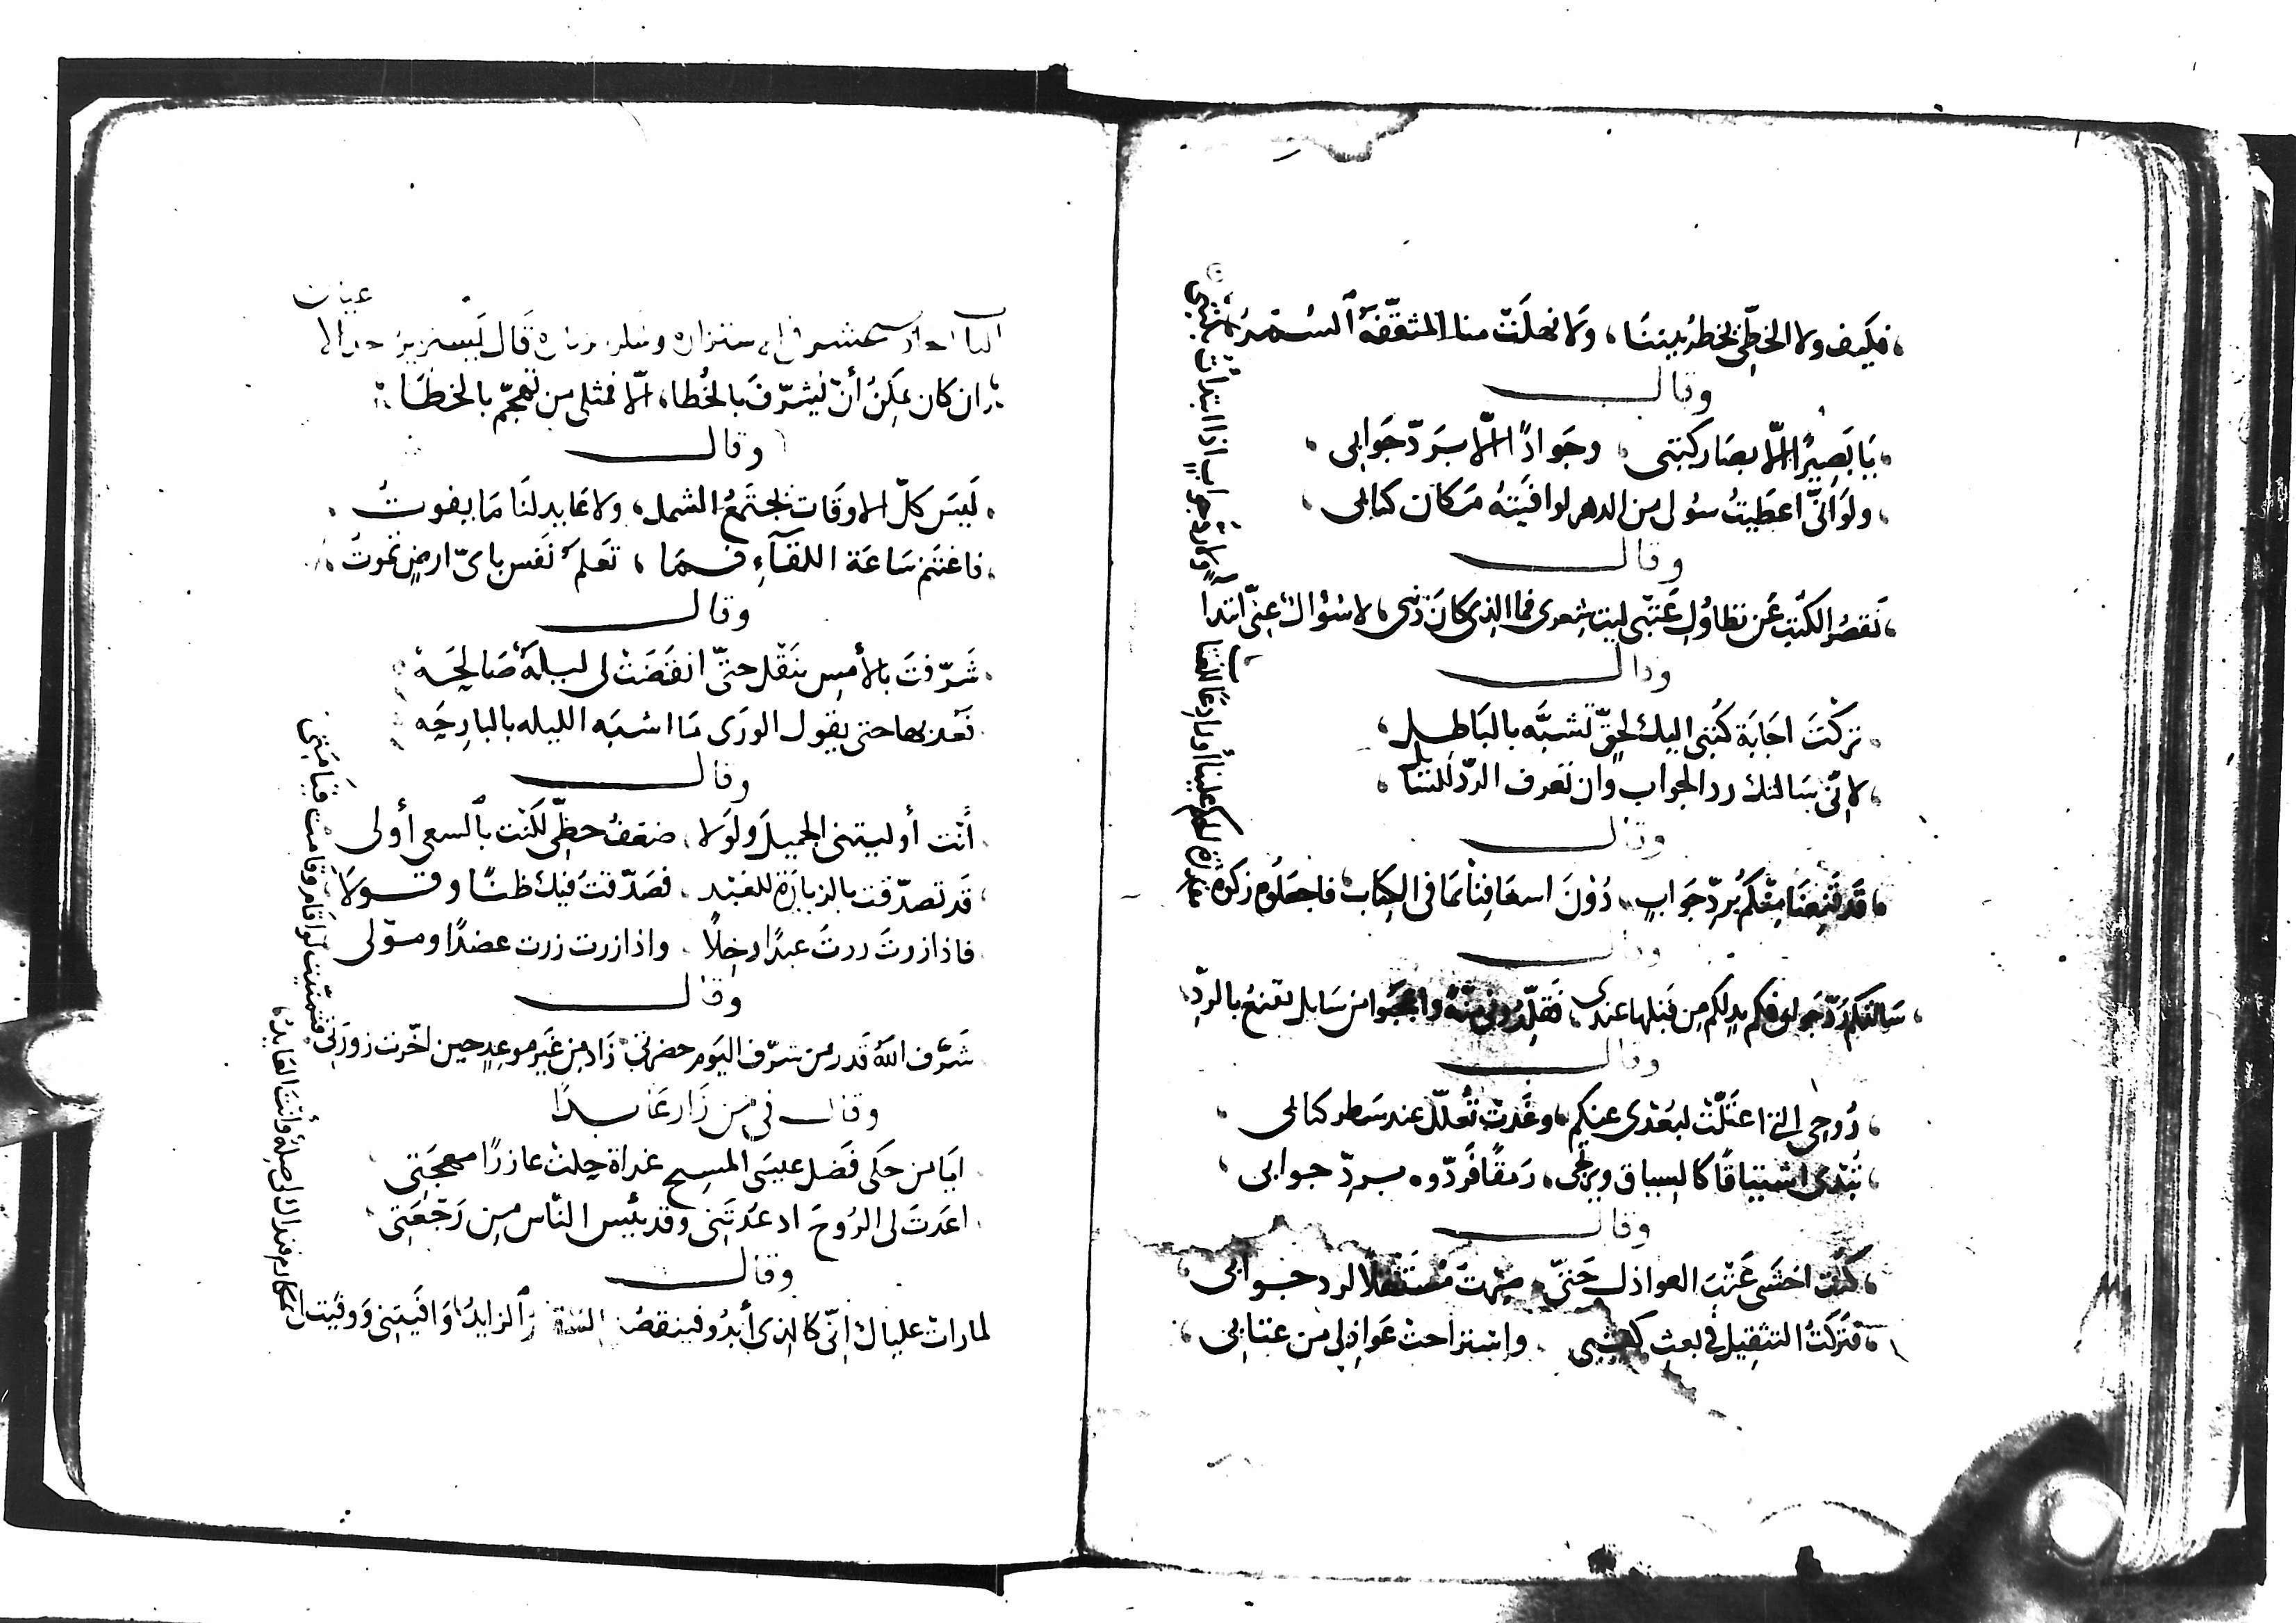 فكيف ولا الخطّي يخطر بيننا ولا نهلت منا المثقّفة السُّمرُ
وقال
يا بصيرًا الّا بصار كتبي وجوادًا الّا بردّ جوابي
ولو انّى اعطيتُ سؤلى من الدهر لوافيته مكان كتابى
وقال
تقصر الكتب عن تطاول عتبى ليت شعرى فما الذى كان ذنبى لا سؤال عنى ابتدأ
ولا ردّ جوابٍ اذا ابتدأت بكتبي
وقال
تركت اجابة كتبى اليك لحقّ تشبّه بالباطل
لانّى سالتك رد الجواب وان تعرف الردّ للسائل
وقال
قد قنعنا منكم بردّ جواب دون اسعافنا بما فى الكتاب فاجعلوه زكوة
وقال
سالتكم ردّ جوابى فكم يد لكم من قبلها عندى فقلّدونى منّة واعجبوا من سايل يقنع بالردّ
وقال
روحى التى اعتلّت لبعدى عنكم وغدت تعلّل عند سطر كتابى
تبدى اشتياقًا كالسياق ويرتجى رمقًا فردّوه بردّ جوابى
وقال
كنت اخشى عتب العواذل حتى صرت مستثقلا لرد جوابى
فتركت التثقيل فى بعث كتبى واستراحت عواذلى من عتابى
قال
ان كان يمكن أن تشرّف بالخُطا الّا فمثلى من تهجّم بالخطا
وقال
ليس كلّ الاوقات يجتمع الشمل ولا عايد لنا ما يفوت
فاغتنم ساعة اللقآء فما تعلم نفس باىّ ارض تموت
وقال
شرّفت بالأمس بنقل حتىّ انقضت لى ليلة صالحه
نعد بها حتى يقول الورى ما اشبه الليله بالبارحه
وقال
أنت أوليتنى الجميل ولولا ضعف حظّى لكنت بالسعى أولى
قد تصدّقت بالزيارة للعبد فصدّقت فيك ظنّا وقولا
فاذا زرت زرت عبدًا وخلًا واذا زرت زرت عضدًا ومولى
وقال
شرّف الله قدر من شرّف اليوم حضرتى زاد من غير موعد حين اخّرت زورتى
فتمنّيت لو اقام وقامت قيامتى
وقال فى من زار عايدًا
ايا من حكى فضل عيسى المسيح غداة حلت عازرًا مهجتى
اعدت لى الروح اذ عدتنى وقد يئس النّاس من رجعتى
وقال
لما رات علياك انّى كالذى أبدو فينقصُ السقام الزايد وافيتنى ووفيت لى
بمكارم فنداك لى صلة وأنت العايد